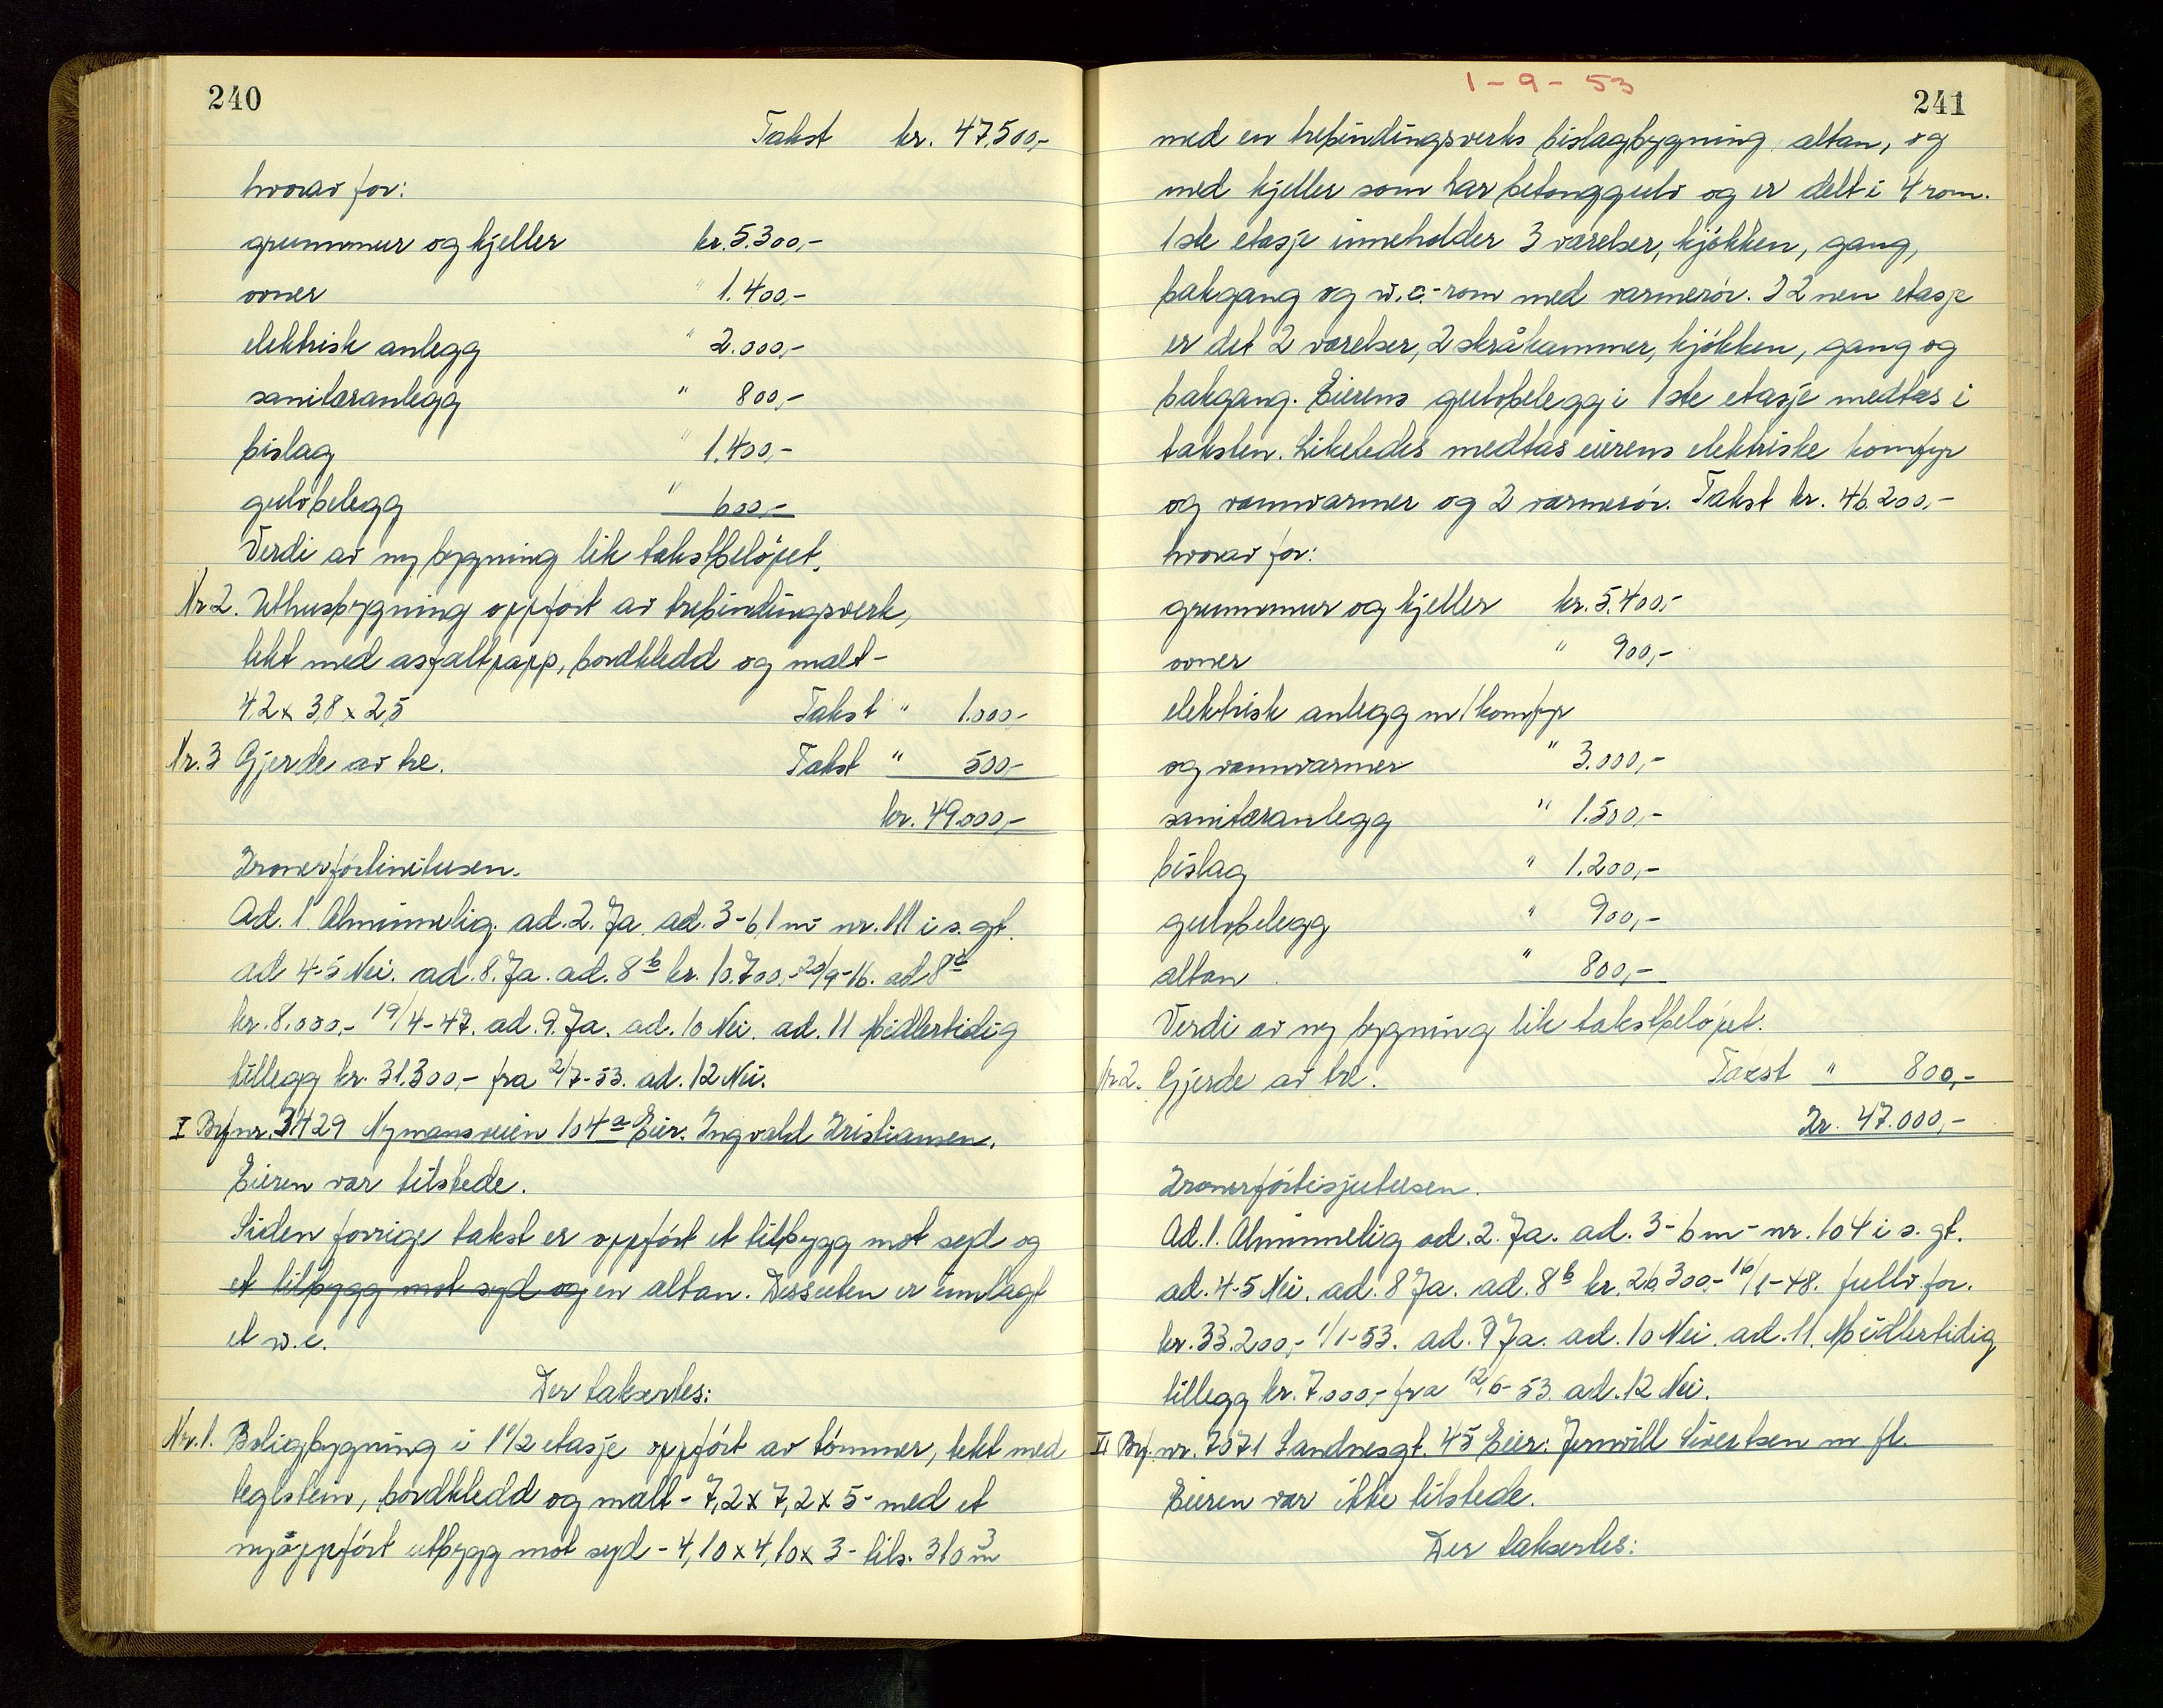 240
Takst kr. 47.500,-
hvorav for:
grunnmur og kjeller kr. 5.300,-
ovner " 1.400,-
elektrisk anlegg " 2.000,-
sanitæranlegg " 800,-
bislag " 1.400,-
gulvbelegg " 600,-
Verdi av ny bygning lik takstbeløpet.
Nr. 2. Uthusbygning oppført av trebindingsverk,
tekt med asfaltpapp, bordkledd og malt -
4,2 x 3,8 x 2,5 Takst " 1.000,-
Nr. 3 Gjerde av tre. Takst " 500,-
kr. 49.000,-
Ad. 1 Alminnelig. ad. 2. Ja. ad. 3 - 6,1 m - nr. 111 i s. gt.
ad 4-5 Nei. ad. 8. Ja. ad. 8 b kr. 10.700,- 20/9-16. ad 8
kr. 8.000,- 19/4-47. ad. 9. Ja. ad. 10 Nei. ad. 11 Midlertidig
tillegg kr. 31.300,- fra 2/7-53. ad. 12 Nei.
I Brf nr. 3429 Nymansveien 104 a Eier: Ingvald Kristiansen.
Eieren var tilstede.
Siden forrige takst er oppført et tilbygg mot syd og
et tilbygg mot syd og en altan. Dessuten er innlagt
et w.c.
Der taksertes:
Nr. 1. Boligbygning i 1 1/2 etasje oppført av tømmer, tekt med
teglstein, bordkledd og malt - 7,2 x 7,2 x 5 - med et
nyoppført utbygg mot syd - 4,10 x 4,10 x 3 - tils. 310 m3
1-9-53
241
med en trebindingsverks bislagbygning, altan, og
med kjeller som har betonggulv og er delt i 4 rom.
1ste etasje inneholder 3 værelser, kjøkken, gang,
bakgang og w.c.-rom med varmerør. I 2nen etasje
er det 2 værelser, 2 skråkammer, kjøkken, gang og
bakgang. Eierens gulvbelegg i 1ste etasje medtas i
taksten. Likeledes medtas eierens elektriske komfyr
og vannvarmer og 2 varmerør. Takst kr. 46.200,-
hvorav for:
grunnmur og kjeller kr. 5.400,-
ovner " 900,-
elektrisk anlegg m/komfyr
og vannvarmer " 3.000,-
sanitæranlegg " 1.500,-
bislag " 1.200,-
gulvbelegg " 900,-
altan " 800,-
Verdi av ny bygning lik takstbeløpet.
Nr 2. Gjerde av tre. Takst " 800,-
Kr. 47.000,-
Ad. 1. Alminnelig ad. 2. Ja. ad. 3 - 6 m - nr. 104 i s. gt.
ad. 4-5 Nei. ad. 8 Ja. ad. 8 b kr. 26.300,- 16/1-48. fullv. for.
kr. 33.200,- 1/1-53. ad. 9 Ja. ad. 10 Nei. ad. 11. Midlertidig
tillegg kr. 7.000,- fra 12/6-53. ad. 12 Nei.
II Brf. nr. 7071 Sandnesgt. 45 Eier: Sivertsen m fl.
Eieren var ikke tilstede.
Der taksertes: